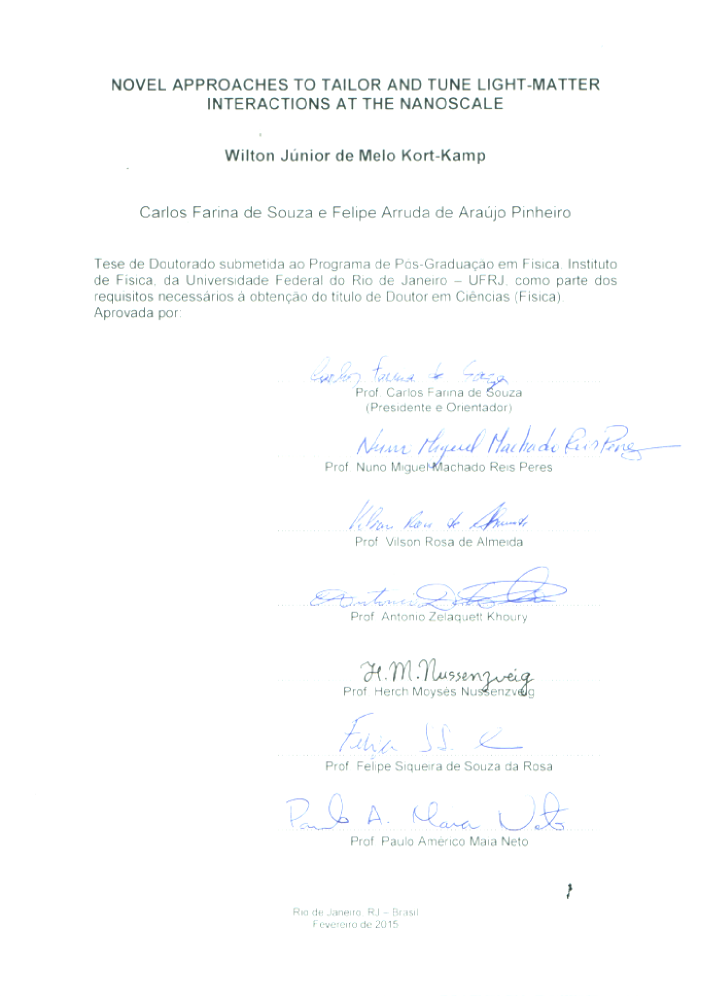 NOVEL APPROACHES TO TAILOR AND TUNE LIGHT-MATTER
INTERACTIONS AT THE NANOSCALE
Wilton Júnior de Melo Kort-Kamp
Carlos Farina de Souza e Felipe Arruda de Araújo Pinheiro
Tese de Doutorado submetida ao Programa de Pós-Graduação em Física, Instituto
de Física, da Universidade Federal do Rio de Janeiro – UFRJ, como parte dos
requisitos necessários à obtenção do título de Doutor em Ciências (Física).
Aprovada por:
Carlos Farina de Souza
Prof. Carlos Farina de Souza
(Presidente e Orientador)
Nuno Miguel Machado Reis Peres
Prof. Nuno Miguel Machado Reis Peres
Vilson Rosa de Almeida
Prof. Vilson Rosa de Almeida
Antonio
Prof. Antonio Zelaquett Khoury
H.M.Nussenzveig
Prof. Herch Moysés Nussenzveig
Felipe S.S.
Prof. Felipe Siqueira de Souza da Rosa
Paulo A. Maia Neto
Prof. Paulo Américo Maia Neto
Rio de Janeiro, RJ – Brasil
Fevereiro de 2015